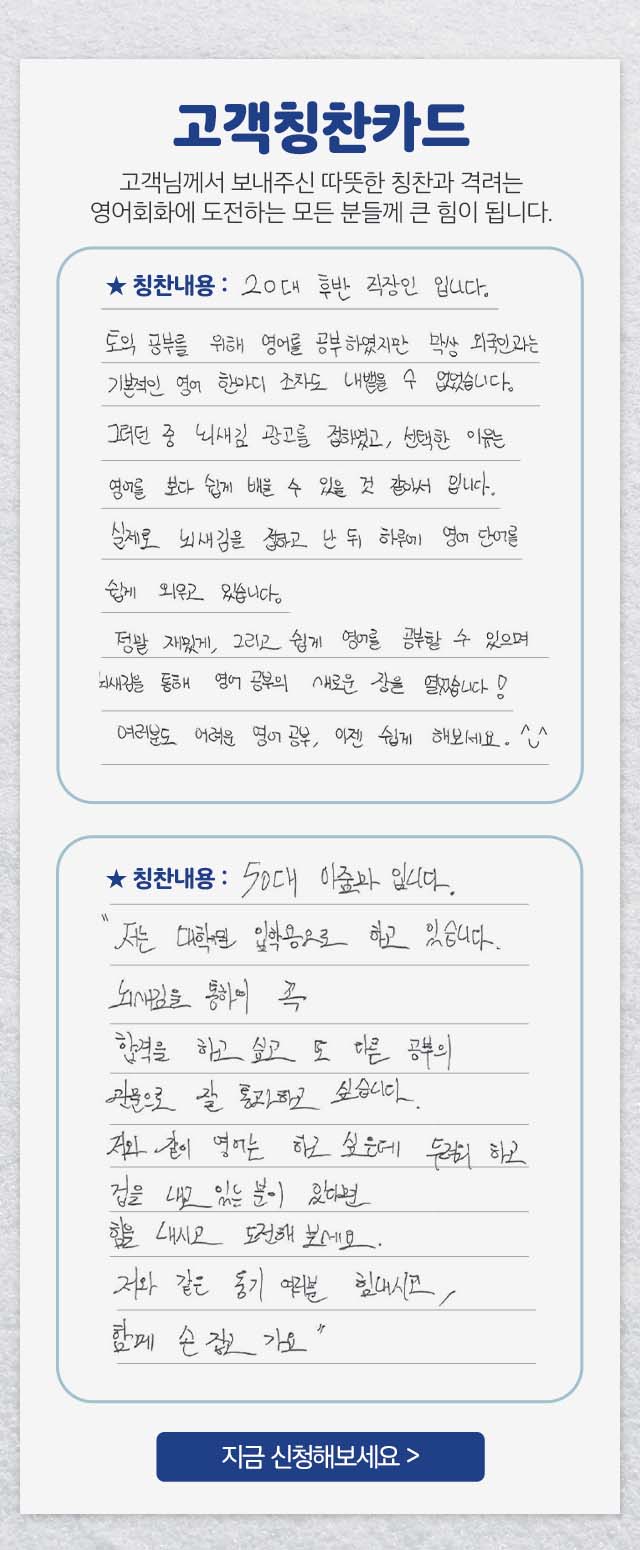 고객칭찬카드
고객님께서 보내주신 따뜻한 칭찬과 격려는
영어회화에 도전하는 모든 분들께 큰 힘이 됩니다.
★ 칭찬내용 : 20대 후반 직장인 입니다.
토익 공부를 위해 영어를 공부하였지만 막상 외국인과는
기본적인 영어 한마디 조차도 내뱉을 수 없었습니다.
그러던 중 뇌새김 광고를 접하였고, 선택한 이유는
영어를 보다 쉽게 배울 수 있을 것 같아서 입니다.
실제로 뇌새김을 접하고 난 뒤 하루에 영어 단어를
쉽게 외우고 있습니다.
정말 재밌게, 그리고 쉽게 영어를 공부할 수 있으며
뇌새김을 통해 영어 공부의 새로운 장을 열었습니다!
여러분도 어려운 영어 공부, 이젠 쉽게 해보세요. ^^
★ 칭찬내용 : 50대 입니다.
"저는 입학용으로 하고 있습니다.
뇌새김을 통하여 꼭
합격을 하고 싶고 또 다른 공부의
관문으로 잘 통과하고 싶습니다.
저와 같이 영어는 하고 싶은데 하고
겁을 내고 있는 분이 있다면
힘을 내시고 도전해 보세요.
저와 같은 동기 여러분 힘내시고,
함께 손 잡고 가요"
지금 신청해보세요 >